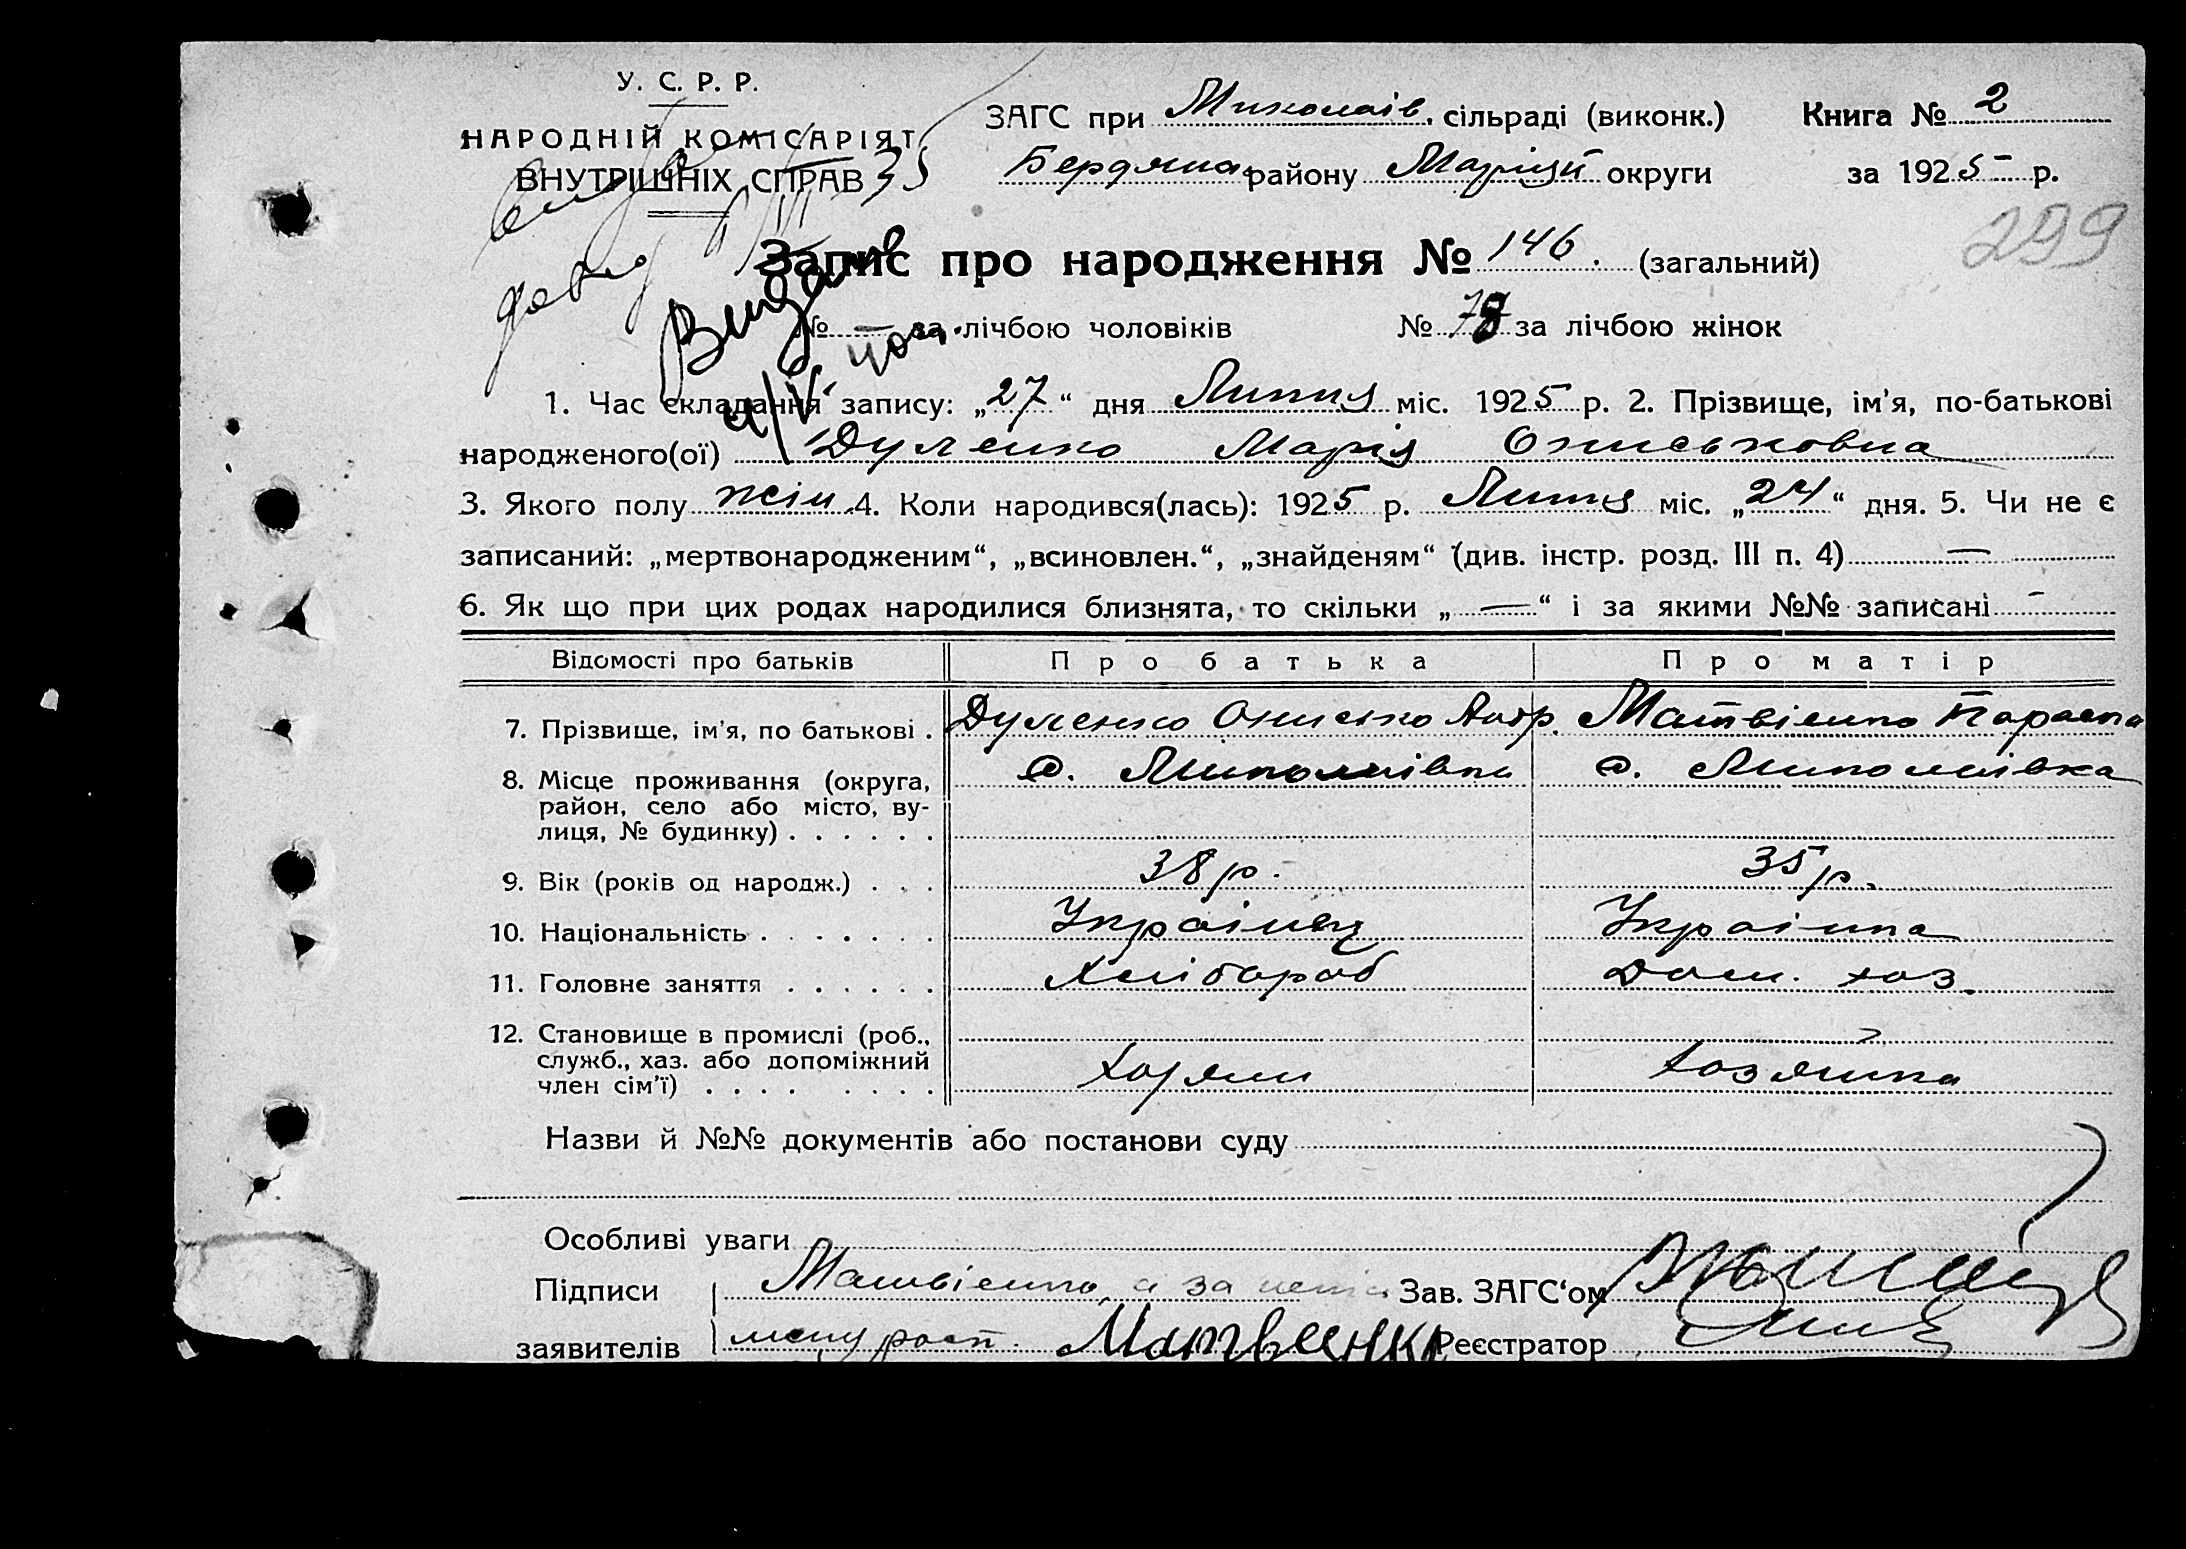 У. С. Р. Р.
НАРОДНІЙ КОМІСАРІЯТ
ВНУТРІШНІХ СПРАВ
ЗАГС при Миколаів. сільраді (виконк.) Книга № 2
Бердянс району Маріуп округи за 1925 р.
299
Запис про народження № 146. (загальний)
№ — за лічбою чоловіків № 78 за лічбою жінок
Видано
1. Час складання запису: „27“ дня Липня міс. 1925 р. 2. Прізвище, ім'я, по-батькові
народженого(ої) Дуленко Марія Ониськовна
3. Якого полу жін. 4. Коли народився(лась): 1925 р. Липня міс. „24“ дня. 5. Чи не є
записаний: „мертвонародженим“, „всиновлен.“, „знайденям“ (див. інстр. розд. III п. 4) —
6. Як що при цих родах народилися близнята, то скільки „—“ і за якими №№ записані -
Відомості про батьків Про батька Про матір
7. Прізвище, ім'я, по батькові . Дуленко Онисько Матвієнко Параска
8. Місце проживання (округа, с. Миколаівка с. Миколаівка
район, село або місто, ву-
лиця, № будинку) . . . . . .
9. Вік (років од народж.) . . . 38 р. 35 р.
10. Національність . . . . . . . Украінец Украінка
11. Головне заняття . . . . . . Хлібороб Дом. хоз.
12. Становище в промислі (роб.,
служб., хаз. або допоміжний Хозяин Хозяйка
член сім'ї) . . . . . . . .
Назви й №№ документів або постанови суду
Особливі уваги
Підписи Матвієнко а за Зав. ЗАГС'ом
заявителів расп. Матвиенко Реєстратор